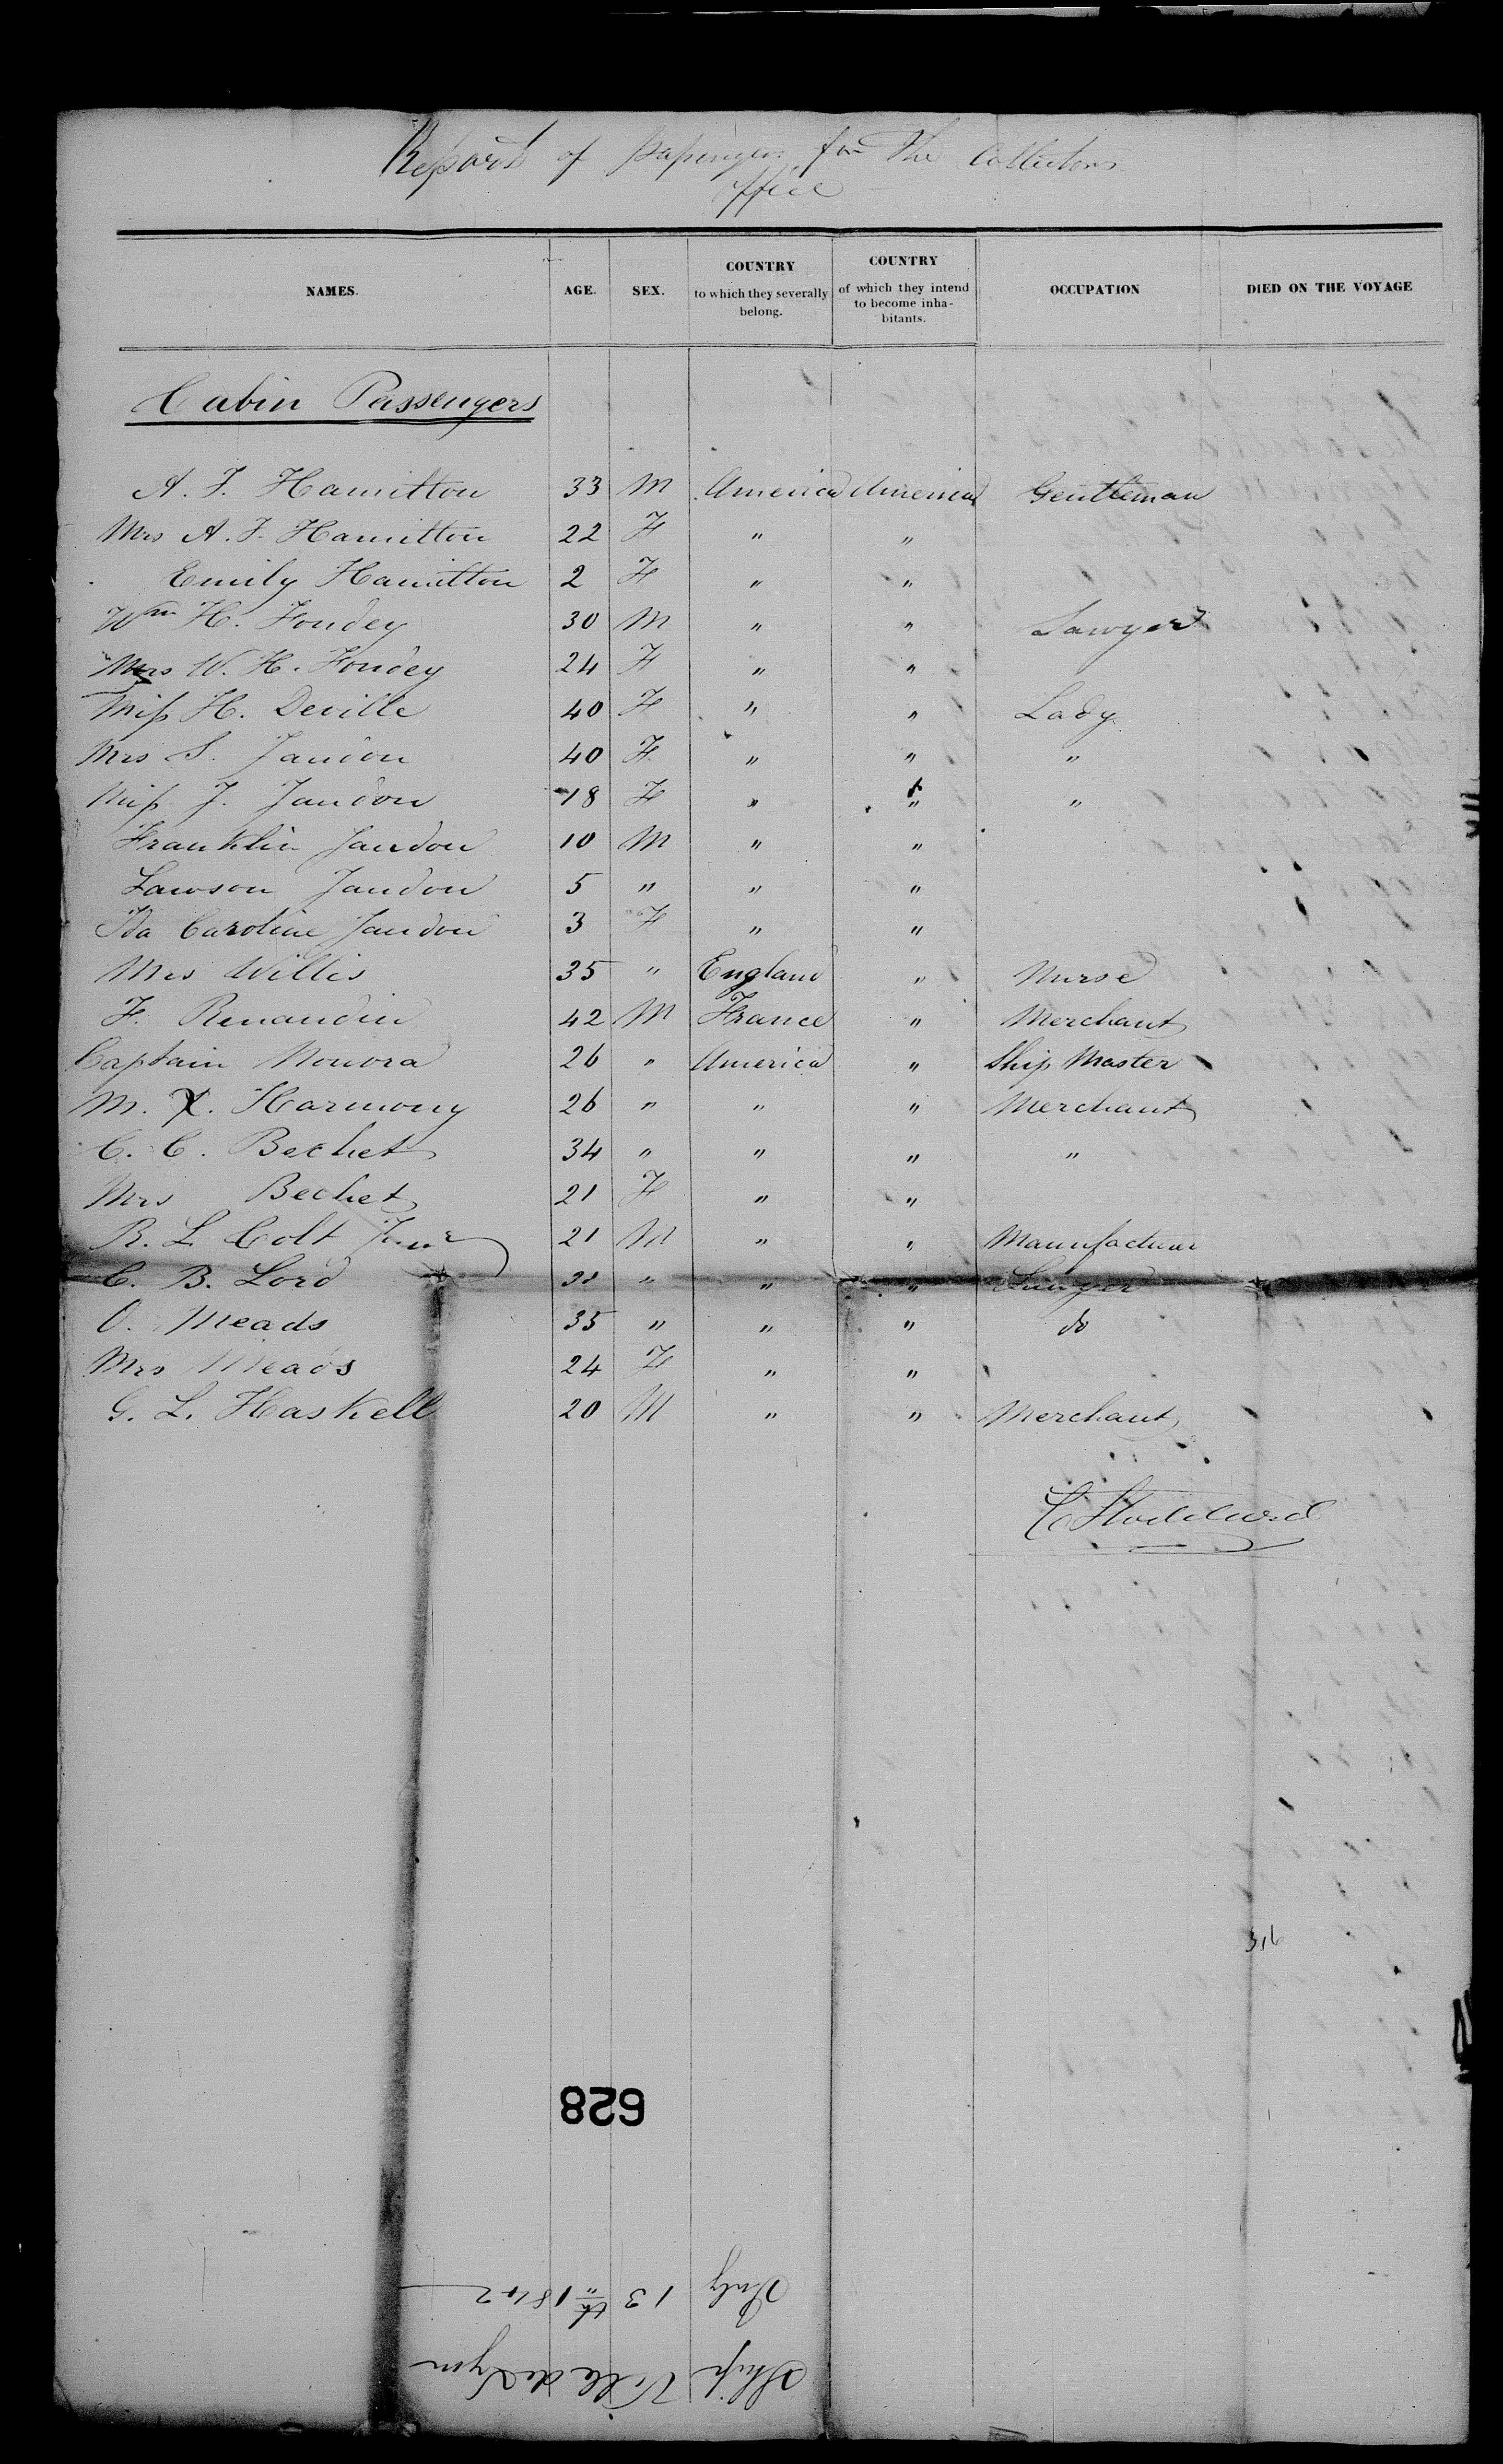 Report of Passengers for the Collectors
Office
NAMES. AGE. SEX. COUNTRY to which they severally belong. COUNTRY of which they intend to become inha-bitants. OCCUPATION DIED ON THE VOYAGE
Cabin Passengers
A. F. Hamilton 33 M America America Gentleman
Mrs A. F. Hamilton 22 F " "
Emily Hamilton 2 F " "
Wm H. Fondey 30 M " " Lawyer
Mrs W. H. Fondey 24 F " "
Miss H. Deville 40 F " " Lady
Mrs S. Jaudon 40 F " " "
Miss J. Jaudon 18 F " " "
Franklin Jaudon 10 M " "
Lawson Jaudon 5 " " "
Ida Caroline Jaudon 3 F " "
Mrs Willis 35 " England " Nurse
F. Renaudin 42 M France " Merchant
Captain 26 " America " Ship Master
M. X. Harmony 26 " " " Merchant
C. C. Bechet 34 " " " "
Mrs Bechet 21 F " "
R. L. Colt Junr 21 M " " Manufacturer
C. B. Lord " " " Lawyer
O. Meads 35 " " " do
Mrs Meads 24 F " "
G. L. Haskell 20 M " " Merchant
C Stoddard
316
628
July 13th 1842
Ship Ville de Lyon